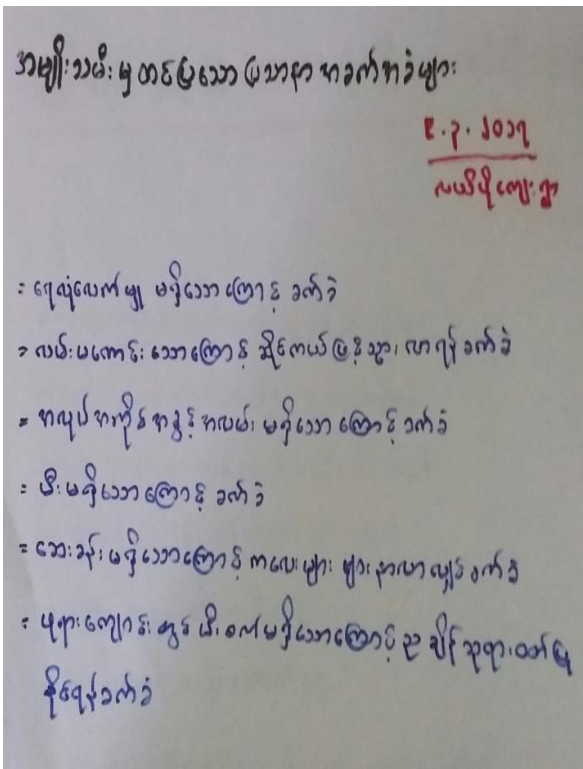 အမျိုးသမီးမှတင်ပြသောပြသာနာအခက်အခဲများ
၉.၃.၂၀၁၇
လယ်ပိုကျေးရွာ
= ရေလုံလောက်မှု မရှိသောကြောင့် ခက်ခဲ
= လမ်းမကောင်းသောကြောင့် ဆိုင်ကယ်ဖြင့်သွား၊လာရန်ခက်ခဲ
= အလုပ်အကိုင်အခွန့်အလမ်း မရှိသောကြောင့်ခက်ခဲ
= မီးမရှိသောကြောင့် ခက်ခဲ
= ဆေးခန်းမရှိသောကြောင့်ကလေးများ ဖျားနာလာလျှင်ခက်ခဲ
= ဘုရားကျောင်းတွင် မီးစက်မရှိသောကြောင့်ညချိန်ဘုရားဝတ်ပြု
နိုင်ရန်ခက်ခဲ